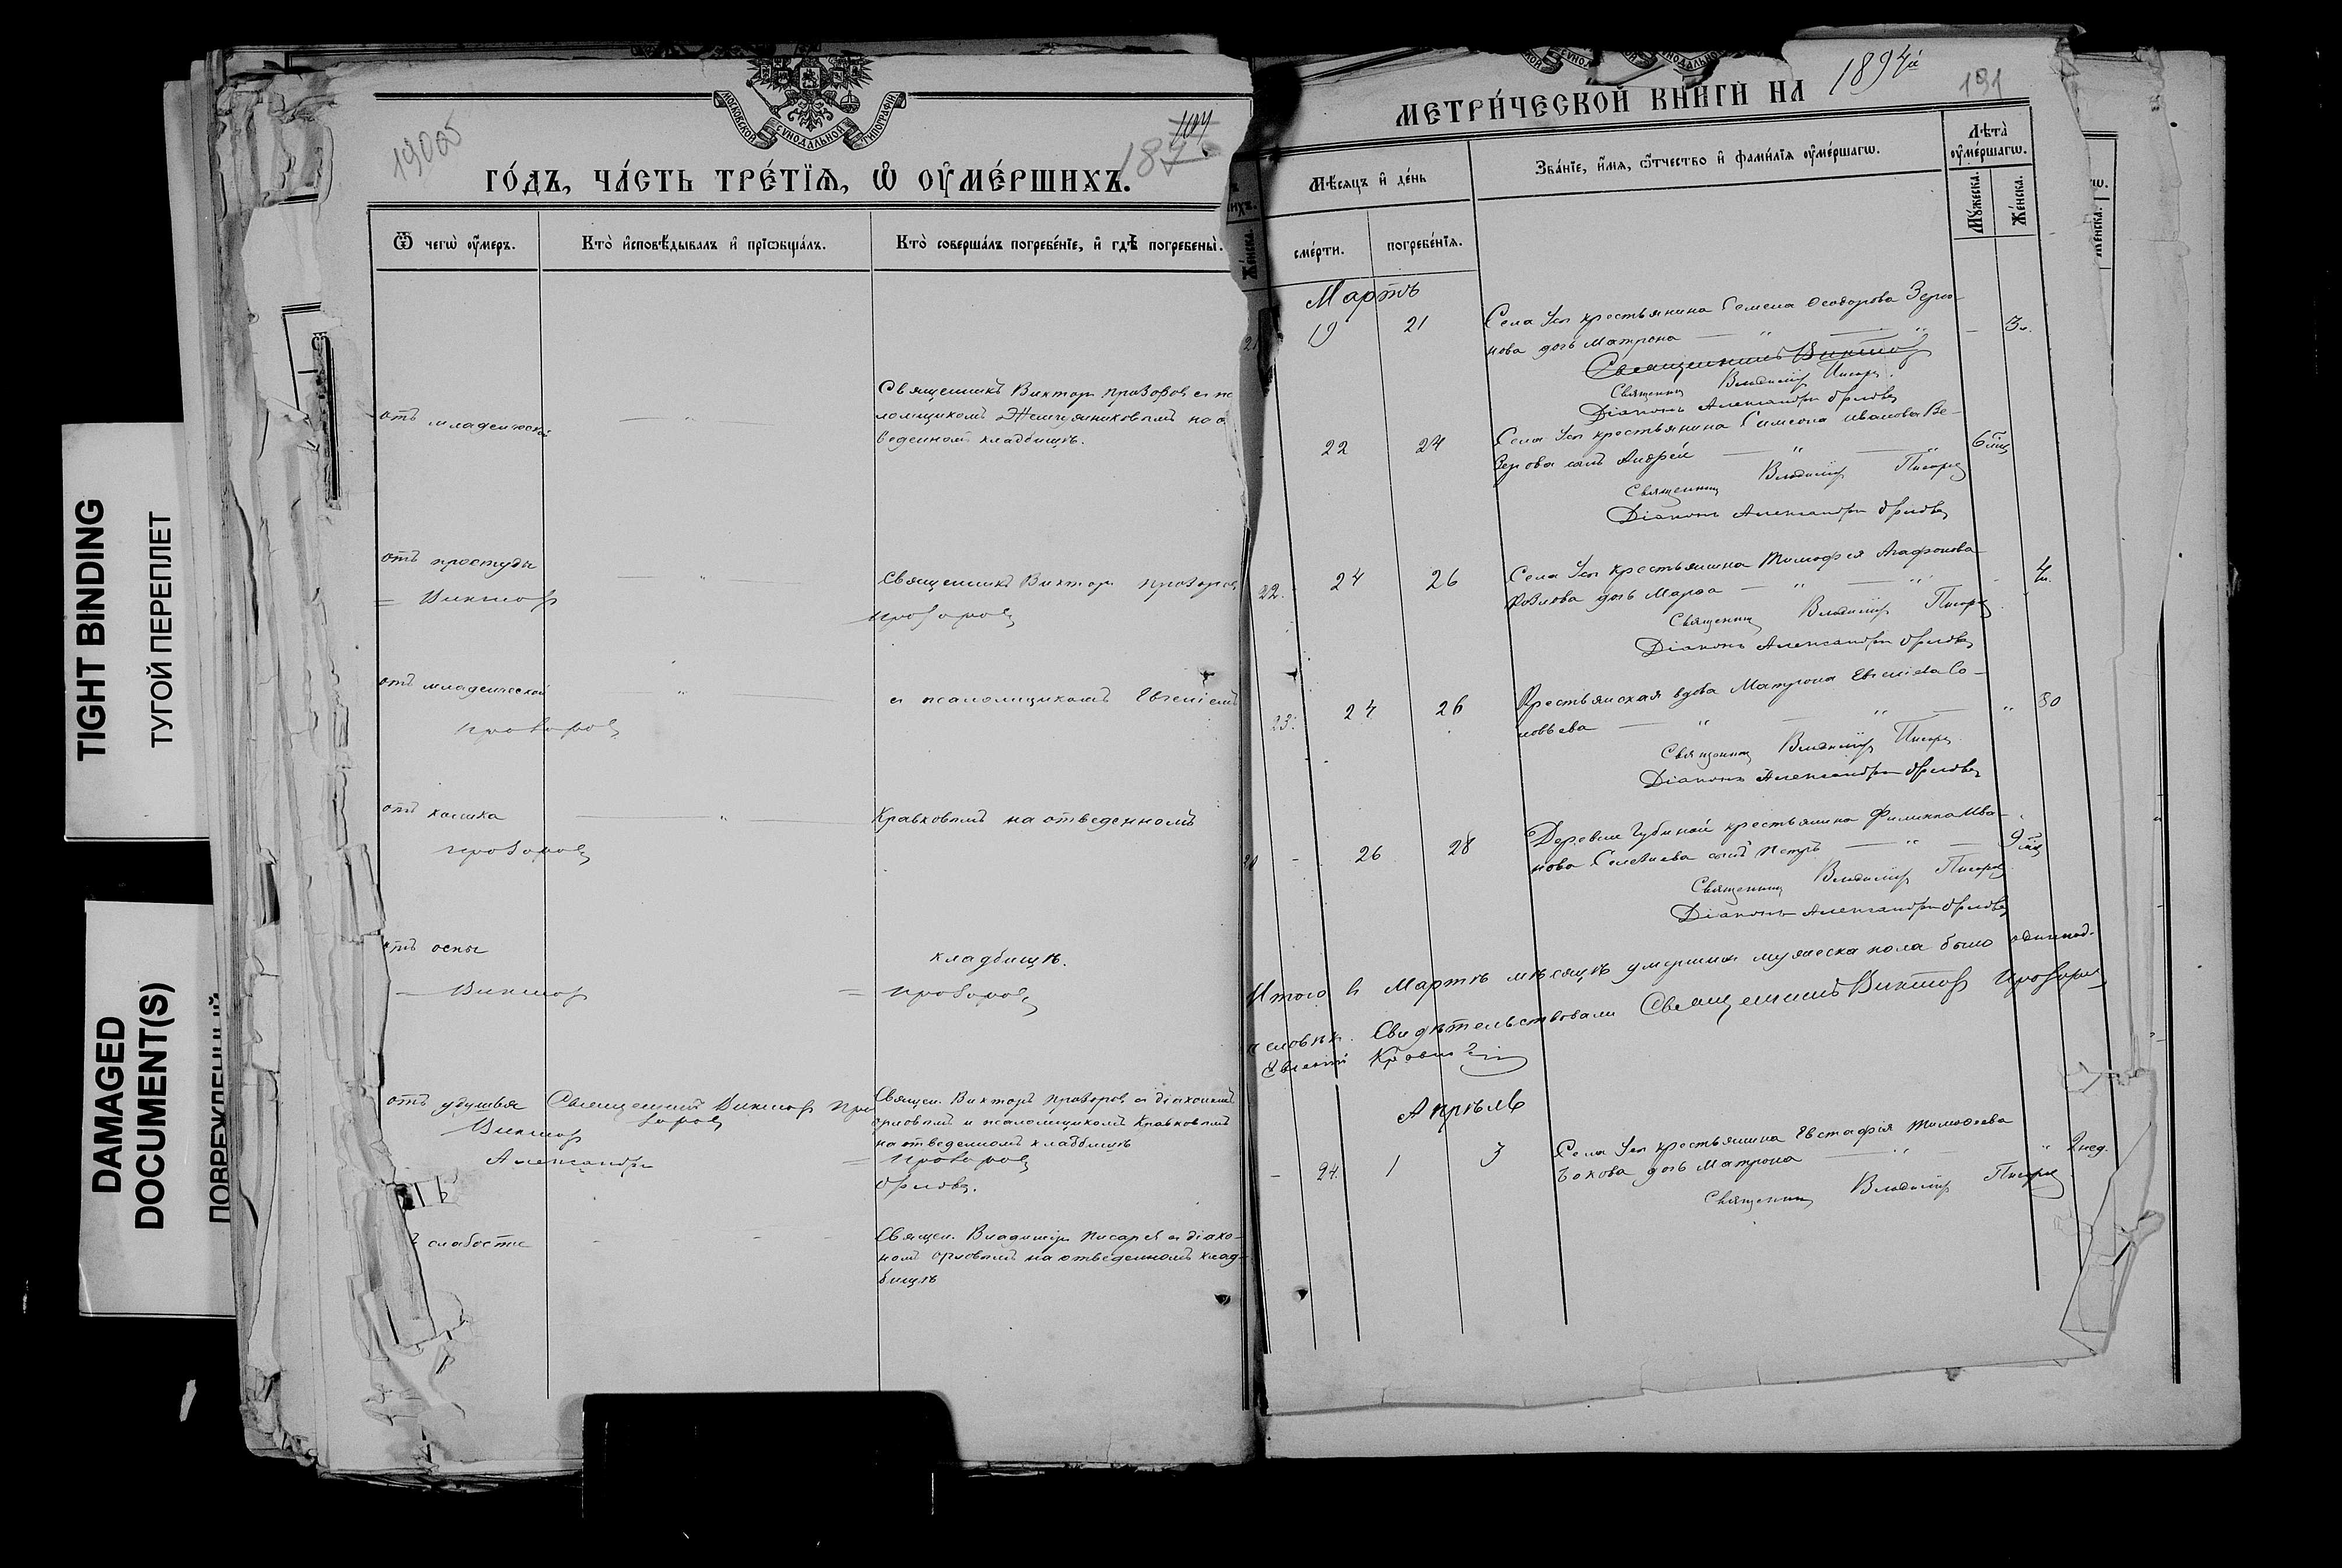 TIGHT BINDING
ТУГОЙ ПЕРЕПЛЕТ
DAMAGED
DOCUMENT(S)
ПОВРЕЖДЕННЫЙ
МОСКОВСКОЙ СѴНОДАЛЬНОЙ ТИПОГРАФІИ
187
ГО́ДЪ, ЧА́СТЬ ТРЕ́ТЇѦ, Ѡ҆ ОУ҆МЕ́РШИХЪ.
Ѿ чегѡ̀ оу҆́меръ.
Кто̀ и҆сповѣ́дывалъ и҆ прїѡбща́лъ.
Кто̀ соверша́лъ погребе́нїе, и҆ гдѣ̀ погребены̀.
отъ младенческой
Священникъ Викторъ Прозоровъ съ
ломщикомъ
веденномъ кладбищѣ.
отъ простуды
Священникъ Викторъ Прозоровъ
Викторъ
Прозоровъ
отъ младенческой
съ псаломщикомъ Евгеніемъ
Прозоровъ
отъ кашля
Кравковымъ на отведенномъ
Прозоровъ
отъ оспы
кладбищѣ.
Викторъ
Прозоровъ
отъ удушья
Священникъ Викторъ Про
зоровъ
Священ. Викторъ Прозоровъ съ діакономъ
Орловымъ и псаломщикомъ Кравковымъ
на отведенномъ кладбищѣ
Викторъ
Прозоровъ
Александръ
Орловъ.
слабости
Священ. Владиміръ Писаревъ съ діако-
номъ Орловымъ на отведенномъ клад-
бищѣ
МЕТРИ́ЧЕСКОЙ КНИ́ГИ НА 1894й
191
Мѣ́сѧцъ и҆ де́нь
сме́рти.
погребе́нїѧ.
Зва́нїе, и҆́мѧ, ѻ҆́тчество и҆ фами́лїѧ оу҆ме́ршагѡ.
Лѣ́та̀ оу҆ме́ршагѡ.
Мꙋ́жеска.
Же́нска.
Мартъ
19 21 Села крестьянина Семена Ѳеодорова
нова дочь Матрона
3
Священникъ Викторъ
Священникъ Владиміръ Писаревъ
Діаконъ Александръ Орловъ
22 24 Села крестьянина Симеона Иванова Ве-
зерова сынъ Андрей
6 мѣс
Священникъ Владиміръ Писаревъ
Діаконъ Александръ Орловъ
22. 24 26 Села крестьянина Тимофея Агафонова
дочь Марѳа
4
Священникъ Владиміръ Писаревъ
Діаконъ Александръ Орловъ
23. 24 26 Крестьянская вдова Матрона Евсиева Со-
ловьева
80
Священникъ Владиміръ Писаревъ
Діаконъ Александръ Орловъ
26 28 Деревни Губиной крестьянина Филиппа Ива-
нова сынъ Петръ
9 мѣс
Священникъ Владиміръ Писаревъ
Діаконъ Александръ Орловъ
Итого въ Мартѣ мѣсяцѣ умершихъ мужеска пола было одиннад-
человѣкъ. Свидѣтельствовали Священникъ Викторъ Прозоровъ
Евгеній Кравковъ
Апрѣль
24. 1 3 Села крестьянина Евстафія Тимоѳеева
дочь Матрона
2 нед.
Священникъ Владиміръ Писаревъ